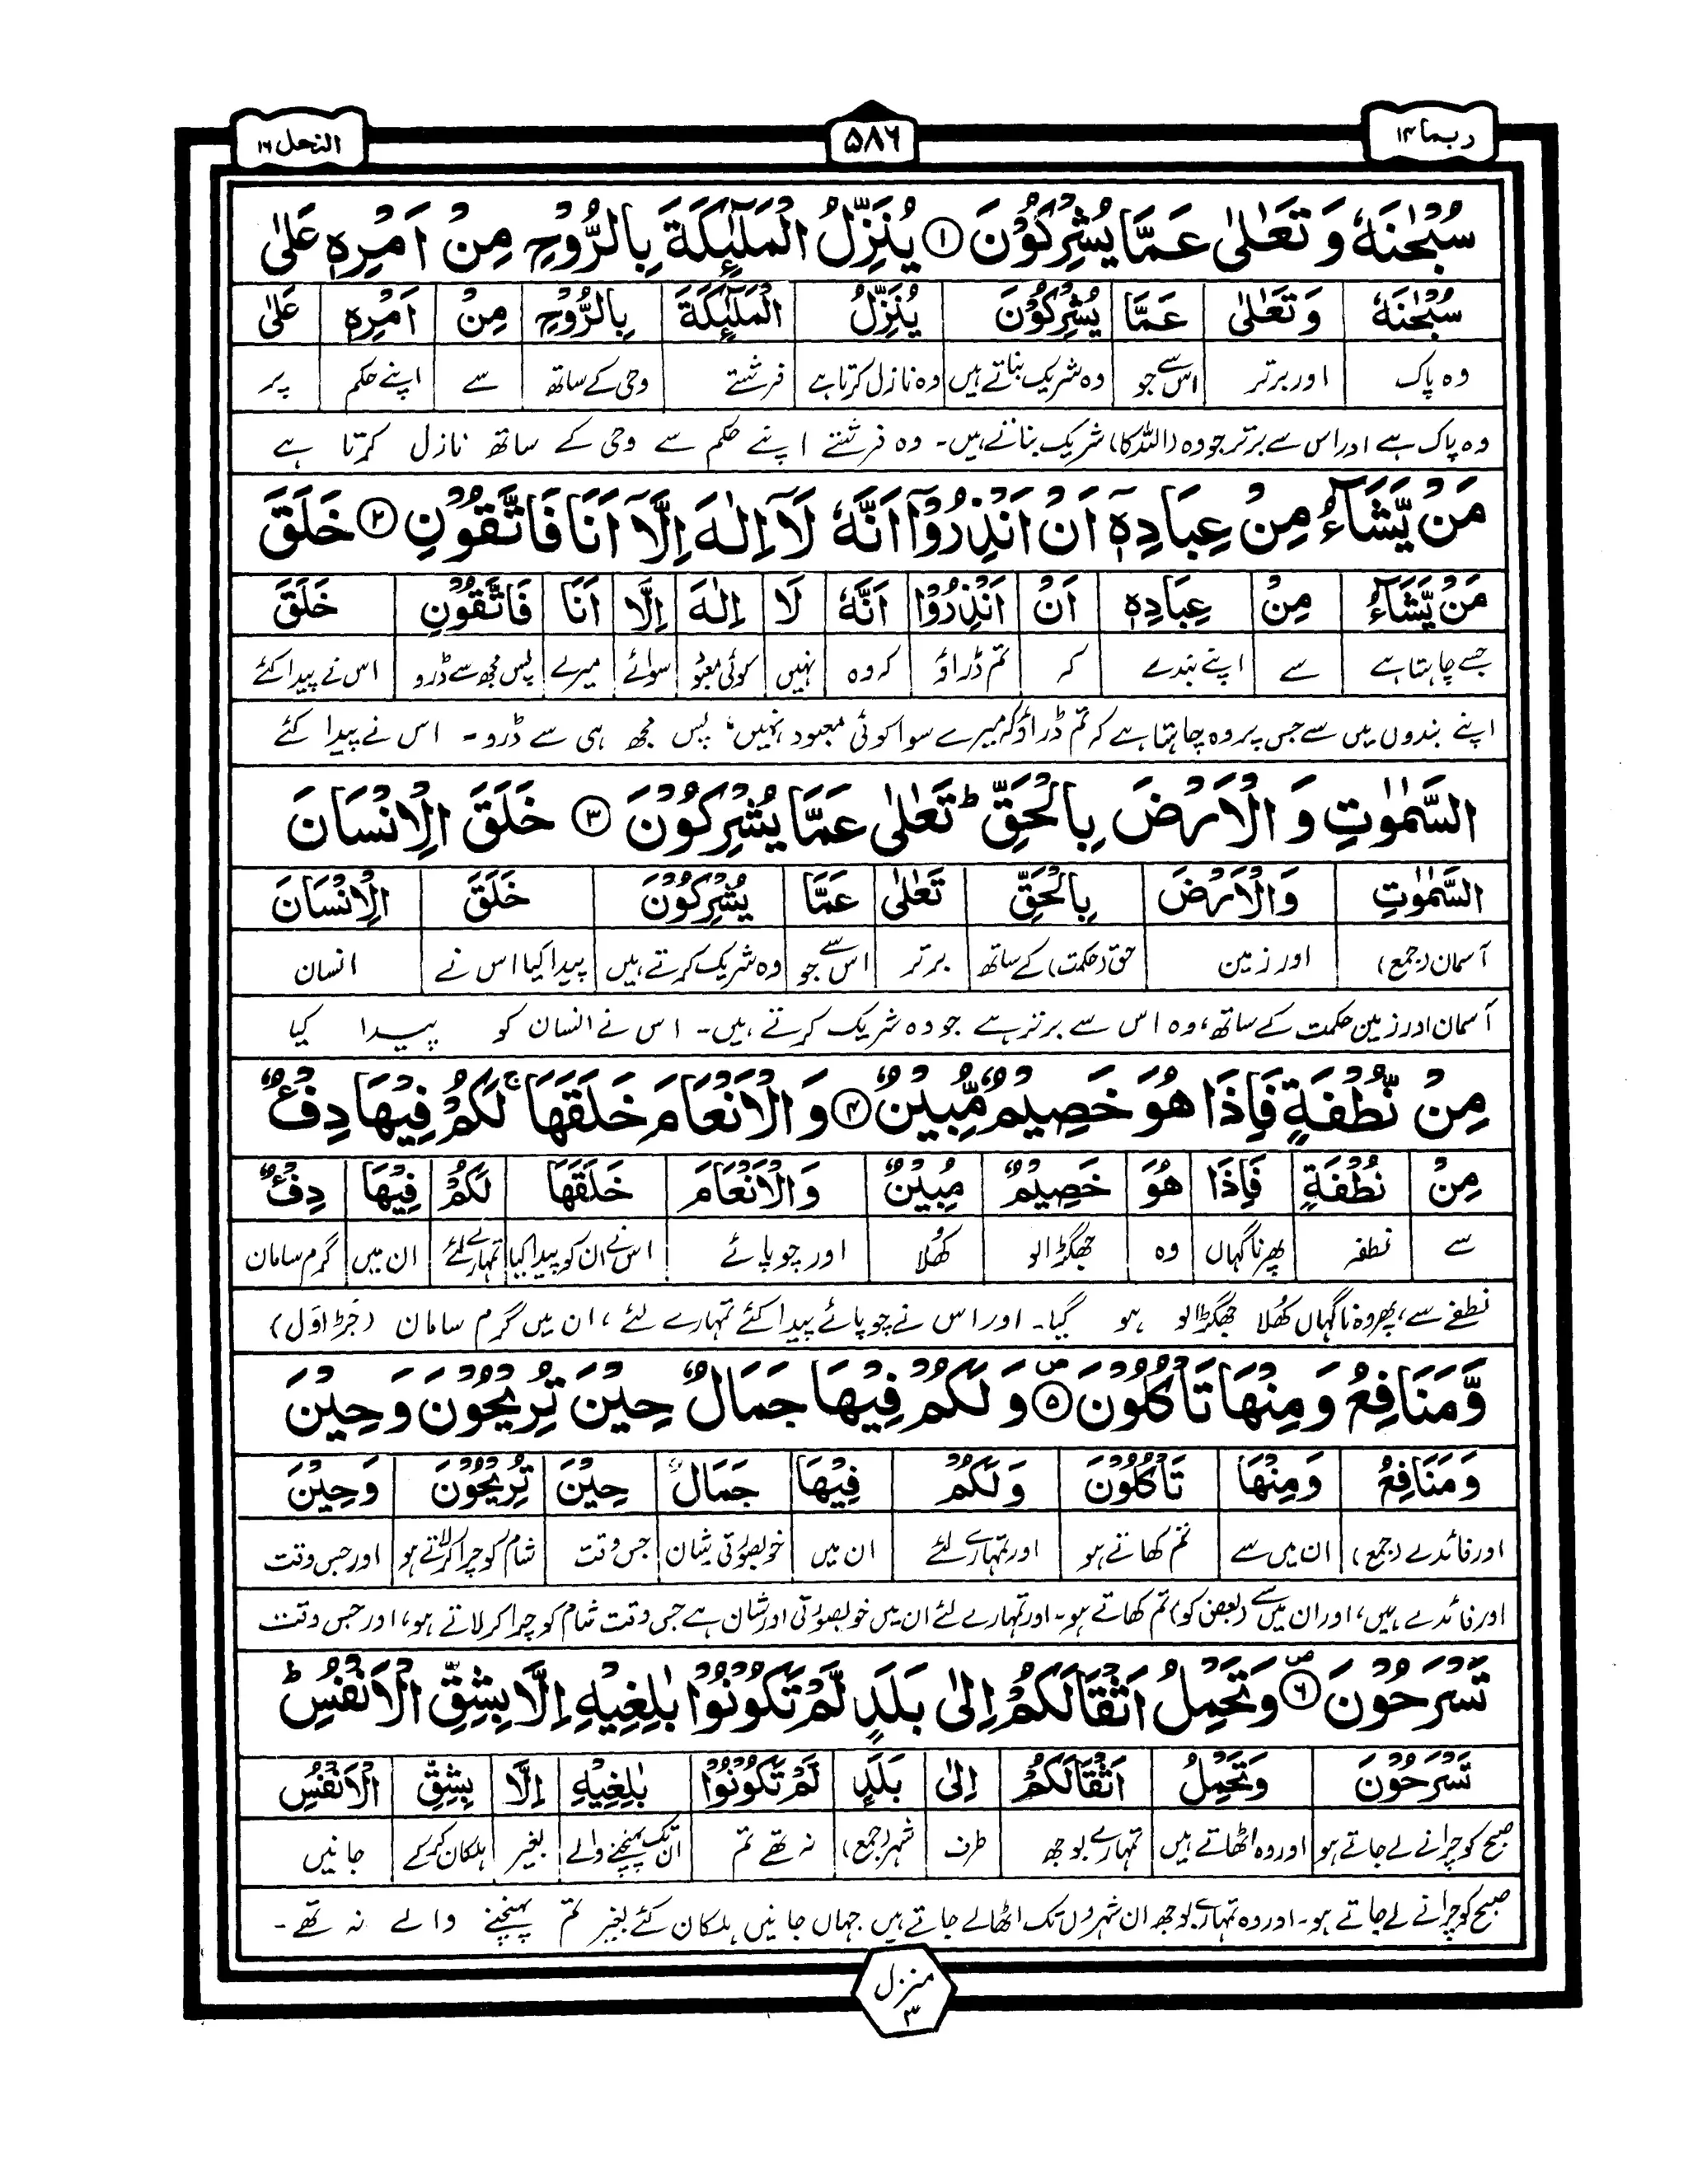 ربما ١٤
٥٨٦
النحل ١٦
سُبْحٰنَهٗ وَ تَعٰلٰی عَمَّا یُشْرِكُوْنَ ① یُنَزِّلُ الْمَلٰٓىِٕكَةَ بِالرُّوْحِ مِنْ اَمْرِهٖ عَلٰی
سُبْحٰنَهٗ وَ تَعٰلٰی عَمَّا یُشْرِكُوْنَ یُنَزِّلُ الْمَلٰٓىِٕكَةَ بِالرُّوْحِ مِنْ اَمْرِهٖ عَلٰی
وہ پاک اور برتر اس سے جو وہ شریک بناتے ہیں وہ نازل کرتا ہے فرشتے وحی کے ساتھ سے اپنے حکم پر
وہ پاک ہے اور اس سے برتر جو وہ (اللہ کا) شریک بناتے ہیں۔ وہ فرشتے اپنے حکم سے وحی کے ساتھ نازل کرتا ہے
مَنْ یَّشَآءُ مِنْ عِبَادِهٖۤ اَنْ اَنْذِرُوْۤا اَنَّهٗ لَاۤ اِلٰهَ اِلَّاۤ اَنَا فَاتَّقُوْنِ ② خَلَقَ
مَنْ یَّشَآءُ مِنْ عِبَادِهٖ اَنْ اَنْذِرُوْا اَنَّهٗ لَا اِلٰهَ اِلَّا اَنَا فَاتَّقُوْنِ خَلَقَ
جسے چاہتا ہے سے اپنے بندے کہ تم ڈراؤ کہ وہ نہیں کوئی معبود سوائے میرے پس مجھ سے ڈرو اس نے پیدا کئے
اپنے بندوں میں سے جس پر وہ چاہتا ہے کہ تم ڈراؤ کہ میرے سوا کوئی معبود نہیں، پس مجھ ہی سے ڈرو۔ اس نے پیدا کئے
السَّمٰوٰتِ وَ الْاَرْضَ بِالْحَقِّ ؕ تَعٰلٰی عَمَّا یُشْرِكُوْنَ ③ خَلَقَ الْاِنْسَانَ
السَّمٰوٰتِ وَالْاَرْضَ بِالْحَقِّ تَعٰلٰی عَمَّا یُشْرِكُوْنَ خَلَقَ الْاِنْسَانَ
آسمان (جمع) اور زمین حق (حکمت) کے ساتھ برتر اس سے جو وہ شریک کرتے ہیں پیدا کیا اس نے انسان
آسمان اور زمین حکمت کے ساتھ، وہ اس سے برتر ہے جو وہ شریک کرتے ہیں۔ اس نے انسان کو پیدا کیا
مِنْ نُّطْفَةٍ فَاِذَا هُوَ خَصِیْمٌ مُّبِیْنٌ ④ وَ الْاَنْعَامَ خَلَقَهَا ۚ لَكُمْ فِیْهَا دِفْءٌ
مِنْ نُطْفَةٍ فَاِذَا هُوَ خَصِیْمٌ مُبِیْنٌ وَالْاَنْعَامَ خَلَقَهَا لَكُمْ فِیْهَا دِفْءٌ
سے نطفہ پھر ناگہاں وہ جھگڑالو کھُلا اور چوپائے اس نے ان کو پیدا کیا تمہارے لئے ان میں گرم سامان
نطفے سے، پھر وہ ناگہاں کھُلا جھگڑالو ہو گیا۔ اور اس نے چوپائے پیدا کئے تمہارے لئے، ان میں گرم سامان (جڑاول)
وَّ مَنَافِعُ وَ مِنْهَا تَاْكُلُوْنَ ⑤ وَ لَكُمْ فِیْهَا جَمَالٌ حِیْنَ تُرِیْحُوْنَ وَ حِیْنَ
وَ مَنَافِعُ وَ مِنْهَا تَاْكُلُوْنَ وَ لَكُمْ فِیْهَا جَمَالٌ حِیْنَ تُرِیْحُوْنَ وَ حِیْنَ
اور فائدے (جمع) ان میں سے تم کھاتے ہو اور تمہارے لئے ان میں خوبصورتی شان جس وقت شام کو چرا کر لاتے ہو اور جس وقت
اور فائدے ہیں، اور ان میں سے (بعض کو) تم کھاتے ہو۔ اور تمہارے لئے ان میں خوبصورتی اور شان ہے جس وقت شام کو چرا کر لاتے ہو، اور جس وقت
تَسْرَحُوْنَ ⑥ وَ تَحْمِلُ اَثْقَالَكُمْ اِلٰی بَلَدٍ لَّمْ تَكُوْنُوْا بٰلِغِیْهِ اِلَّا بِشِقِّ الْاَنْفُسِ ؕ
تَسْرَحُوْنَ وَ تَحْمِلُ اَثْقَالَكُمْ اِلٰی بَلَدٍ لَمْ تَكُوْنُوْا بٰلِغِیْهِ اِلَّا بِشِقِّ الْاَنْفُسِ
صبح کو چرانے لے جاتے ہو اور وہ اٹھاتے ہیں تمہارے بوجھ طرف شہر (جمع) نہ تھے تم ان تک پہنچنے والے بغیر ہلکان کر کے جانیں
صبح کو چرانے لے جاتے ہو۔ اور وہ تمہارے بوجھ ان شہروں تک اٹھا لے جاتے ہیں جہاں جانیں ہلکان کئے بغیر تم پہنچنے والے نہ تھے۔
منزل ٣